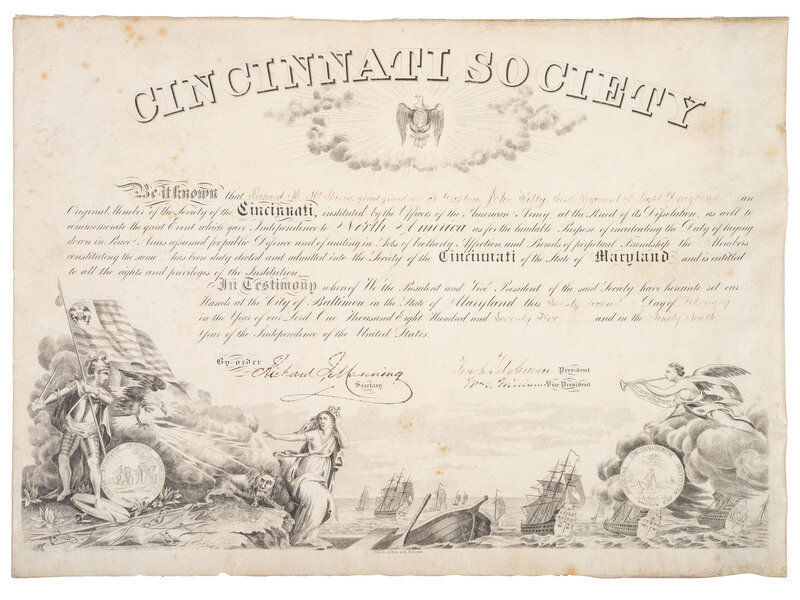 CINCINNATI SOCIETY
Be it known that Richard M. McSherry great grandson of Captain John Kilty, third Regiment of Light Dragoons an
Original Member of the Society of the Cincinnati, instituted by the Officers of the American Army, at the Period of its Dissolution, as well to
commemorate the great Event which gave Independence to North America as for the laudable Purpose of inculcating the Duty of laying
down in Peace Arms assumed for public Defence and of uniting in Acts of brotherly Affection and Bonds of perpetual Friendship the Members
constituting the same has been duly elected and admitted into the Society of the Cincinnati of the State of Maryland and is entitled
to all the rights and privileges of the Institution
In Testimony whereof We the President and Vice President of the said Society have hereunto set our
Hands at the City of Baltimore in the State of Maryland this Twenty Second Day of February
in the Year of our Lord One Thousand Eight Hundred and Seventy Five and in the Ninety Ninth
Year of the Independence of the United States.
By order
Richard Manning Secretary
President
Vice President